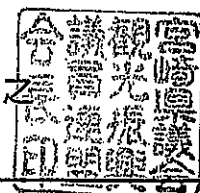 宮崎県議会
観光振興
議員連盟
会長之印
之